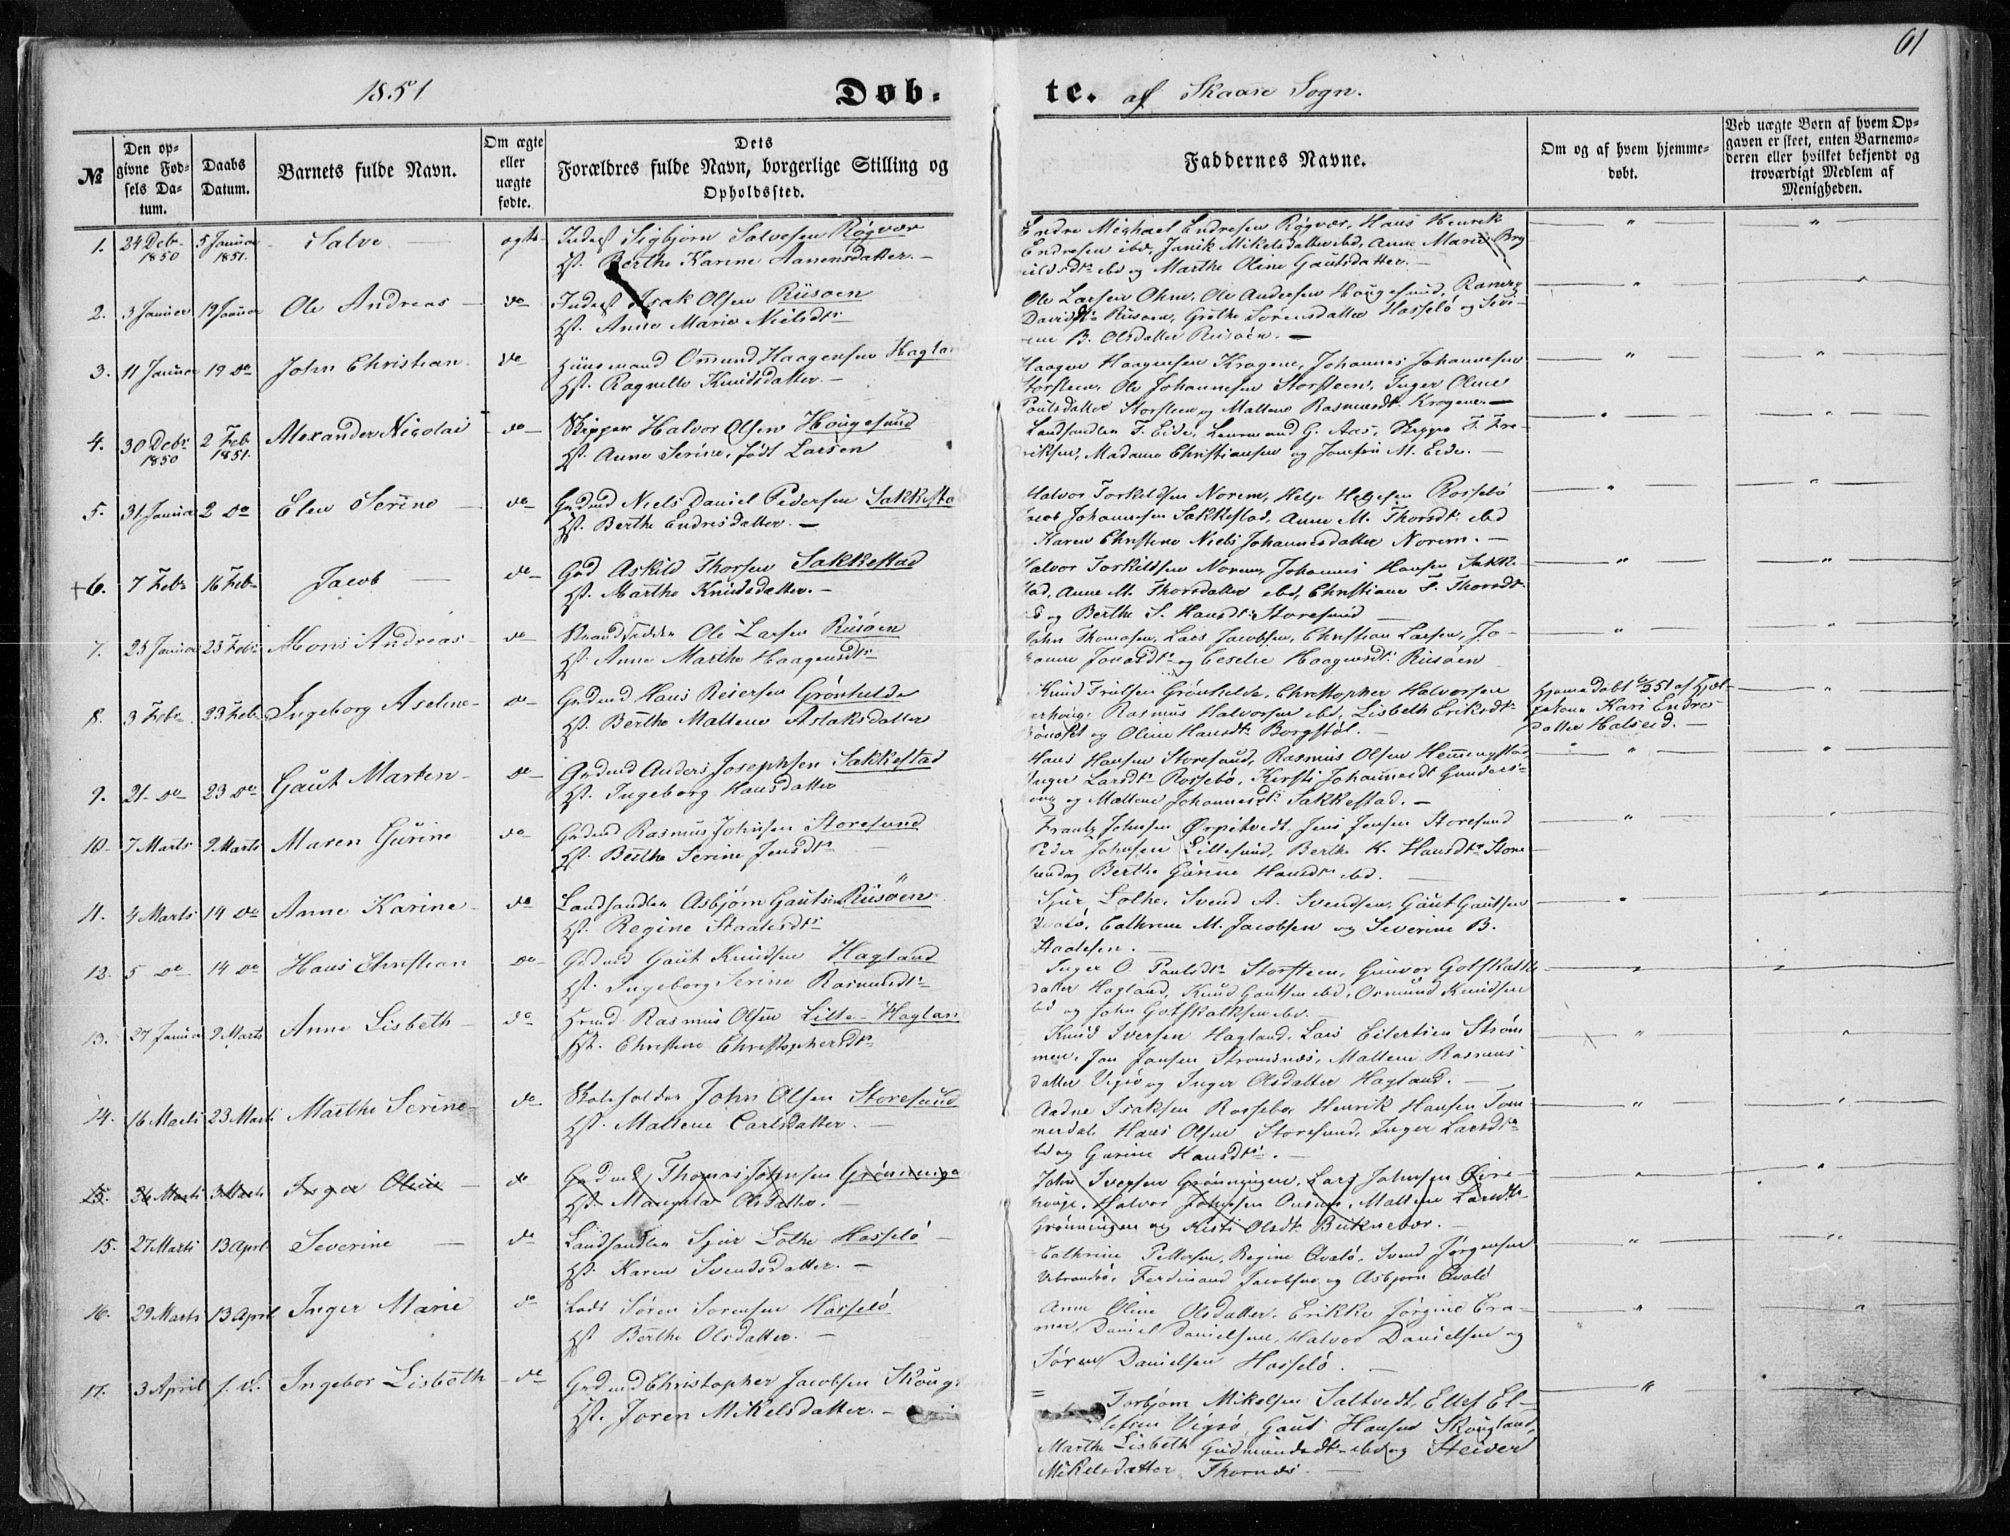 61
1851 Døb- te. af Skaare Sogn.
№
Den op-
givne Fød-
sels Da-
tum.
Daabs
Datum.
Barnets fulde Navn.
Om ægte
eller
uægte
fødte.
Dets
Forældres fulde Navn, borgerlige Stilling og
Opholdssted.
Faddernes Navne.
Om og af hvem hjemme-
døbt.
Ved uægte Børn af hvem Op-
gaven er skeet, enten Barnemo-
deren eller hvilket bekjendt og
troværdigt Medlem af
Menigheden.
1. 24 Debr 1850 5 Januar 1851. Salve ægte
Inderst Sigbjørn Salvesen Røgvær
Hst. Berthe Karine Aanensdatter.
Endre Michael Endresen Røgvær, Hans Henrik
Endresen ibd, Janik Mikelsdatter ibd, Anne Marie
ibd og Marthe Oline Gautsdatter.
2. 3 Januar 19 Januar Ole Andreas do
Inderst Isak Olsen Riisøen
Hst. Anne Marie Nielsdtr
Ole Larsen Ohm, Ole Andersen Hougesund,
Davidsdtr Riisøen, Grethe Sørensdatter Hasselø og Seve-
rine B. Olsdatter Riisøen.
3. 11 Januar 19 do John Christian do
Huusmand Omund Haagensen Haglan
Hst. Ragnille Knudsdatter.
Haagen Haagensen Kragene, Johannes Johannesen
Storsteen, Ole Johannesen Storsteen, Inger Oline
Poulsdatter Storsteen og Maltene Rasmusdt. Kragene.
4. 30 Debr 1850 2 Feb 1851. Alexander Nicolai do
Skipper Halvor Olsen Hougesund
Hst. Anne Serine, født Larsen
Landhandler F. Eide, G. Aas, Skipper F. Fre-
riksen, Madame Christiansen og Jomfru M. Eide.
5. 31 Januar 2 do Elen Serine do
Grdmd Niels Daniel Pedersen Sakkesta
Hst. Berthe Endresdatter.
Halvor Torkildsen Norem, Helje Heljesen Rossebø
Jacob Johannesen Sakkestad, Anne M. Thorsdt. ibd
Karen Christine Niels Johannesdatter Norem.
+6. 7 Febr 16 Febr Jacob do
Grd Askild Thorsen Sakkestad
Hst. Marthe Knudsdatter.
Halvor Torkildsen Norem, Johannes Hansen Sakke-
tad, Anne M. Thorsdatter ibd, Christiane F. Thorsdt.
og Berthe S. Hansdt. Storesund
7. 25 Januar 23 Febr Mons Andreas do
Strandsidder Ole Larsen Riisøen
Hst. Anne Marthe Haagensdtr
John Thomasen, Lars Jacobsen, Christian Larsen, Jo-
hanne Jonasdtr og Ceselie Haagensdt. Riisøen
8. 3 Febr 23 Feb. Ingeborg Aseline do
Grdmd Hans Reiersen Grønhelde
Hst. Berthe Maltene Aslaksdatter
Knud Grønhelde, Christopher Halvorsen
Rasmus Halvorsen ibd, Lisbeth Eriksdtr
og Oline Hansdt. Borgstøl.
hjemmedøbt 51 af
Kari Endres-
datter Halseid.
9. 21 do 23 do Gaut Marten do
Grdmd Anders Josephsen Sakkestad
Hst. Ingeborg Hansdatter
Hans Hansen Storesund, Rasmus Olsen Hemmingstad
Inger Larsdtr Rossebø, Kirsti Johannesdt Gunders-
og Maltene Johannesdt. Sakkestad.
10. 7 Marts 9 Marts Maren Gurine do
Grdmd Rasmus Johnsen Storesund
Hst. Berthe Serine Jensdtr
Frantz Johnsen Ørpetvedt, Jens Jensen Storesund
Peder Johnsen Lillesund, Berthe K. Hansdtr Store
sund og Berthe Gurine Hansdtr ibd.
11. 4 Marts 14 do Anne Karine do
Landhandler Asbjørn Gautsen Riisøen
Hst. Regine Staalesdtr
Sjur Lothe, Svend A. Svendsen, Gaut Gautsen
Qvalø, Cathrine M. Jacobsen og Severine B.
Staalesen.
12. 5 do 14 do Hans Christian do
Grdmd Gaut Knudsen Hagland
Hst. Ingeborg Serine Rasmusdtr
Inger O. Poulsdtr Storsteen, Gunvor Gotskalks-
datter Hagland, Knud Gautsen ibd, Osmund Knudsen
ibd og John Gotskalksen ibd.
13. 27 Januar 9 Marts Anne Lisbeth do
Hrmd Rasmus Olsen Lille-Haglan
Hst. Christine Christophersdtr
Knud Iversen Hagland, Lars Eilertsen Strøm
men, Jan Jansen Stromsnæs, Maltene Rasmus
datter Vigsø og Inger Olsdatter Hagland.
14. 16 Marts 23 Marts Marthe Serine do
Skoleholder John Olsen Storesund
Hst. Maltene Carlsdatter.
Aadne Isaksen Rossebø, Henrik Hansen Tom
merdal, Hans Olsen Storesund, Inger Larsdtr
ibd og Gurine Hansdtr.
15. Marts Marts Inger Oline do
Grdmd Thomas Johnsen Grønninge
Hst. Olsdatter.
John Iversen Grønningen, Lars Johnsen Øvre-
houge, Halvor Johnsen Maltene Larsdtr
Grønningen og Kisti Olsdt. Buknebær.
15. 27 Marts 13 April Severine do
Landhandler Sjur Lothe Hasselø
Hst. Karen Svendsdatter.
Cathrine Pettersen, Regine Qvalø, Svend Jørgensen
Ferdinand Jacobsen og Asbjørn Qvalø
16. 29 Marts 13 April Inger Marie do
Lods Søren Sørensen Hasselø
Hst Berthe Olsdatter.
Anne Oline Olsdatter, Erikke Jørgine Cra-
mer, Daniel Danielsen, Halvor Danielsen og
Søren Danielsen Hasselø.
17. 3 April s. d. Ingebor Lisbeth do
Grdmd Christopher Jacobsen Skoug
Hst. Joren Mikelsdatter.
Torbjørn Mikelsen Saltvedt, Ellef El-
lefsen Vigsø, Gaut Hansen Skougland,
Marthe Lisbeth Gudmundsdt. ibd og Steiner
Mikelsdatter Thornæs.